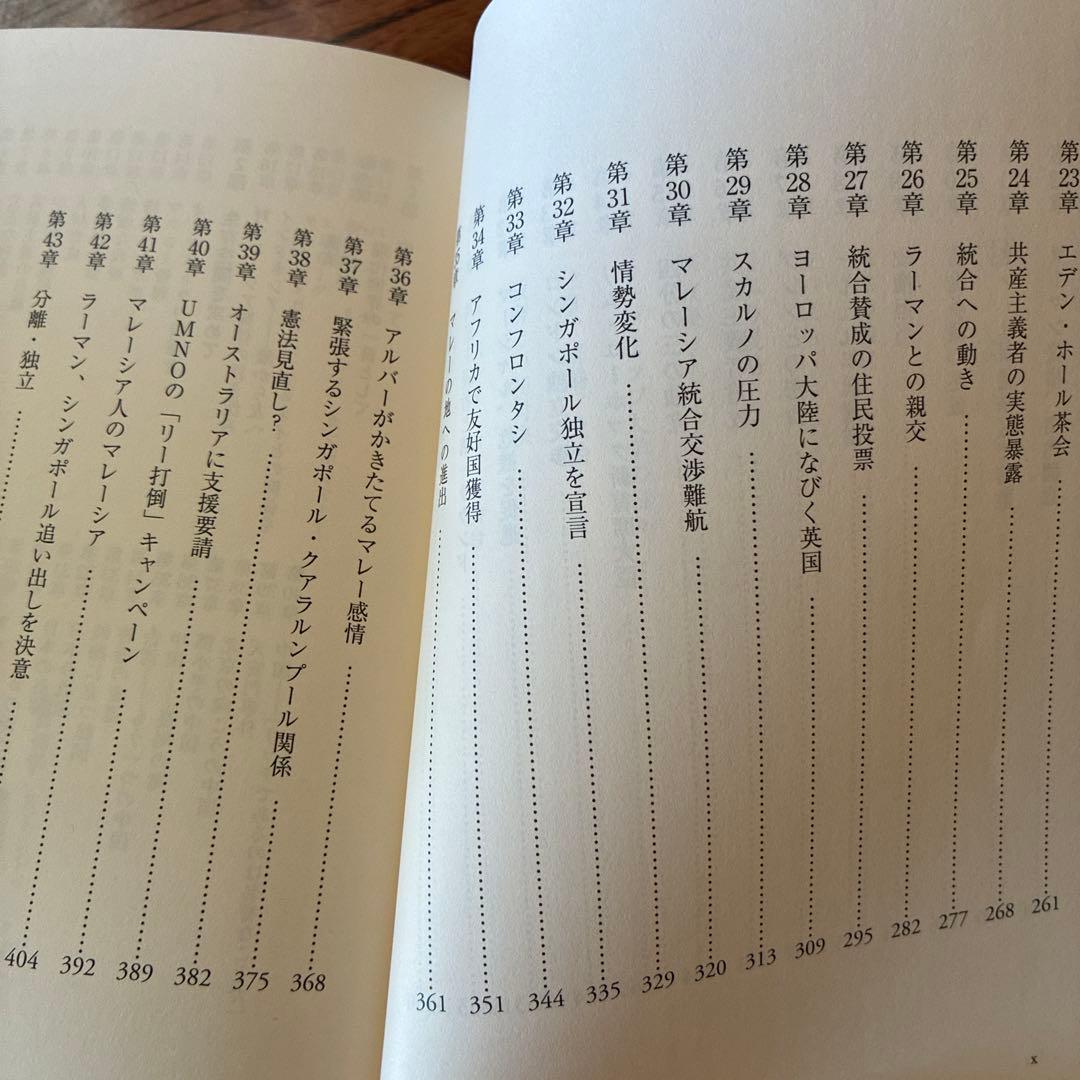 第23章 エデン・ホール茶会 …… 261
第24章 共産主義者の実態暴露 …… 268
第25章 統合への動き …… 277
第26章 ラーマンとの親交 …… 282
第27章 統合賛成の住民投票 …… 295
第28章 ヨーロッパ大陸になびく英国 …… 309
第29章 スカルノの圧力 …… 313
第30章 マレーシア統合交渉難航 …… 320
第31章 情勢変化 …… 329
第32章 シンガポール独立を宣言 …… 335
第33章 コンフロンタシ …… 344
第34章 アフリカで友好国獲得 …… 351
第35章 マレーの地への進出 …… 361
x
第36章 アルバーがかきたてるマレー感情 …… 368
第37章 緊張するシンガポール・クアラルンプール関係 …… 375
第38章 憲法見直し? …… 382
第39章 オーストラリアに支援要請 …… 389
第40章 UMNOの「リー打倒」キャンペーン …… 392
第41章 マレーシア人のマレーシア …… 404
第42章 ラーマン、シンガポール追い出しを決意 ……
第43章 分離・独立 ……